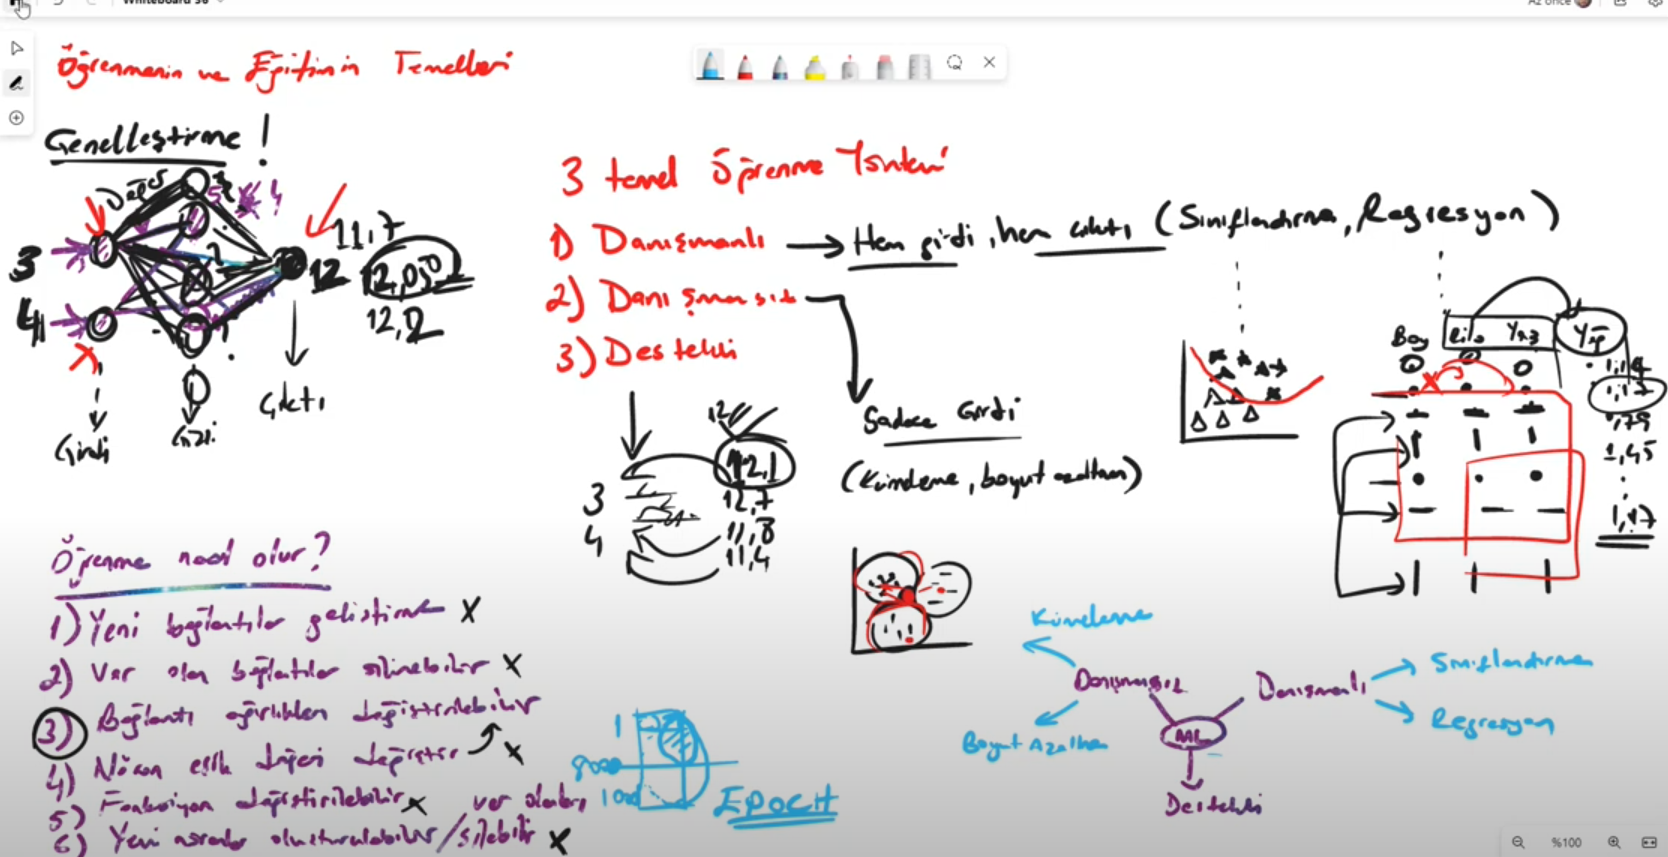 Whiteboard 50
Az önce
Öğrenmenin ve Eğitimin Temelleri
Genelleştirme !
3
4
5
4
11,7
12
12,2
Girdi
Gizli
Çıktı
3 temel Öğrenme Yöntemi
1) Danışmanlı → Hem girdi, hem çıktı (Sınıflandırma, Regresyon)
2) Danışmansız
3) Destekli
Sadece Girdi
(Kümeleme, boyut azaltma)
3
4
12
12,1
12,7
11,8
11,4
Boy Kilo Yaş
1,17
1,79
1,45
1,17
Öğrenme nasıl olur?
1) Yeni bağlantılar geliştirme X
2) Var olan bağlantılar silinebilir X
3) Bağlantı ağırlıkları değiştirilebilir
4) Nöron eşik değeri değiştir X
5) Fonksiyon değiştirilebilir X
6) Yeni nöronlar oluşturulabilir / var olanlar silebilir X
1
8000
EPOCH
Kümeleme
Danışmansız
Boyut Azaltma
ML
Danışmanlı
Sınıflandırma
Regresyon
Destekli
%100